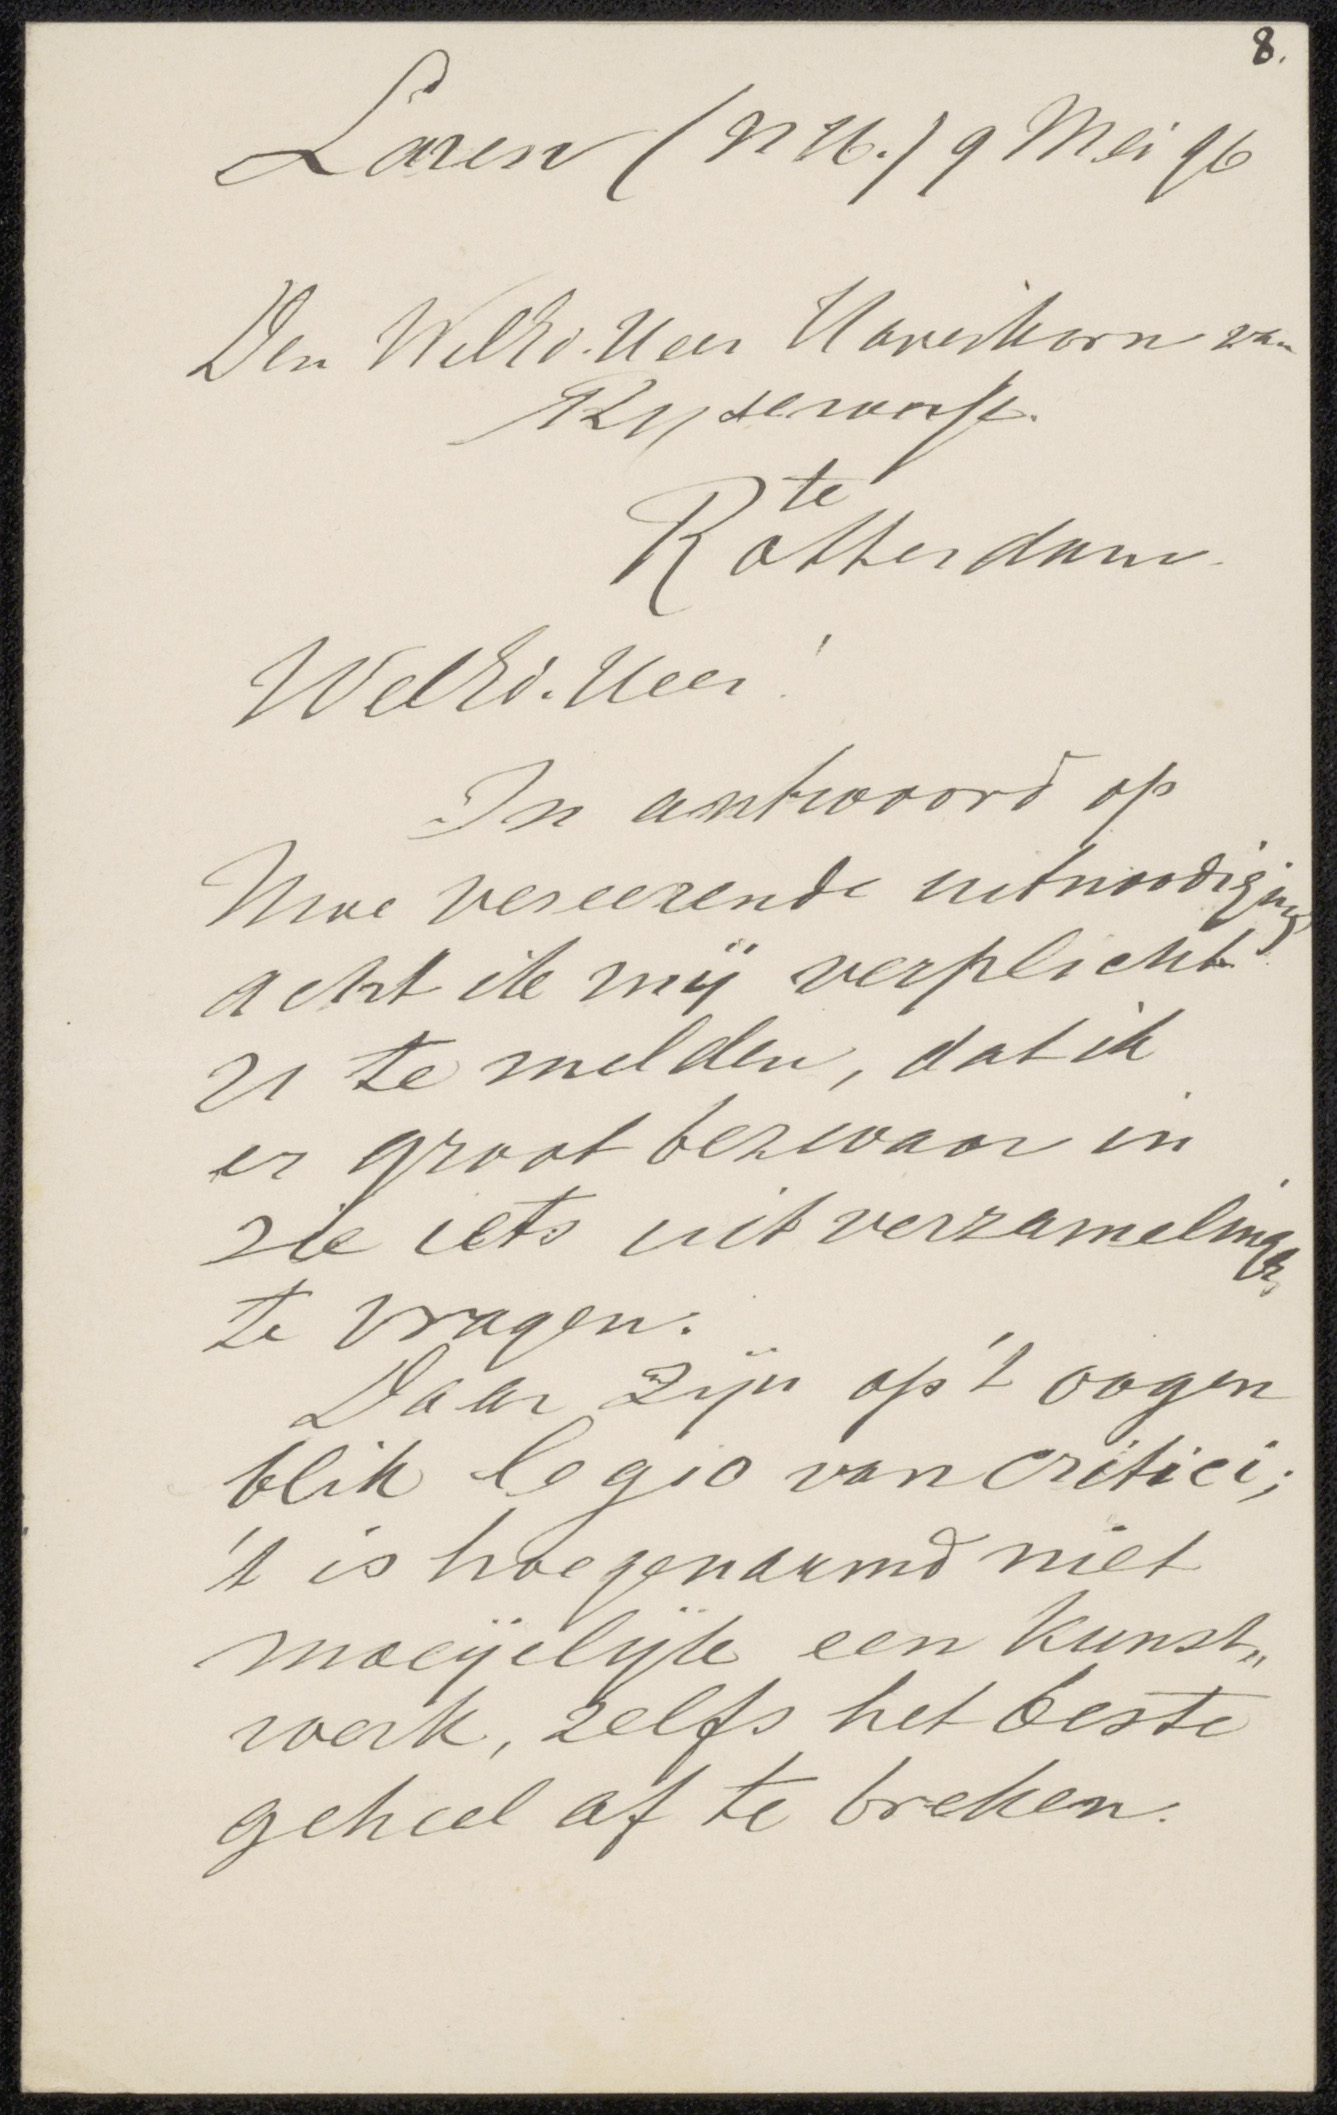 8.
Laren (N H.) 9 Mei 96
Den WelEd. Heer Haverkorn van
Rijsewijk.
te
Rotterdam.
WelEd. Heer!
In antwoord op
Uwe vereerende uitnoodiging
acht ik mij verplicht
U te melden, dat ik
er groot bezwaar in
zie iets uit verzamelingen
te vragen.
Daar zijn op 't oogen
blik legio van critici;
't is hoegenaamd niet
moeijelijk een kunst„
werk, zelfs het beste
geheel af te breken.